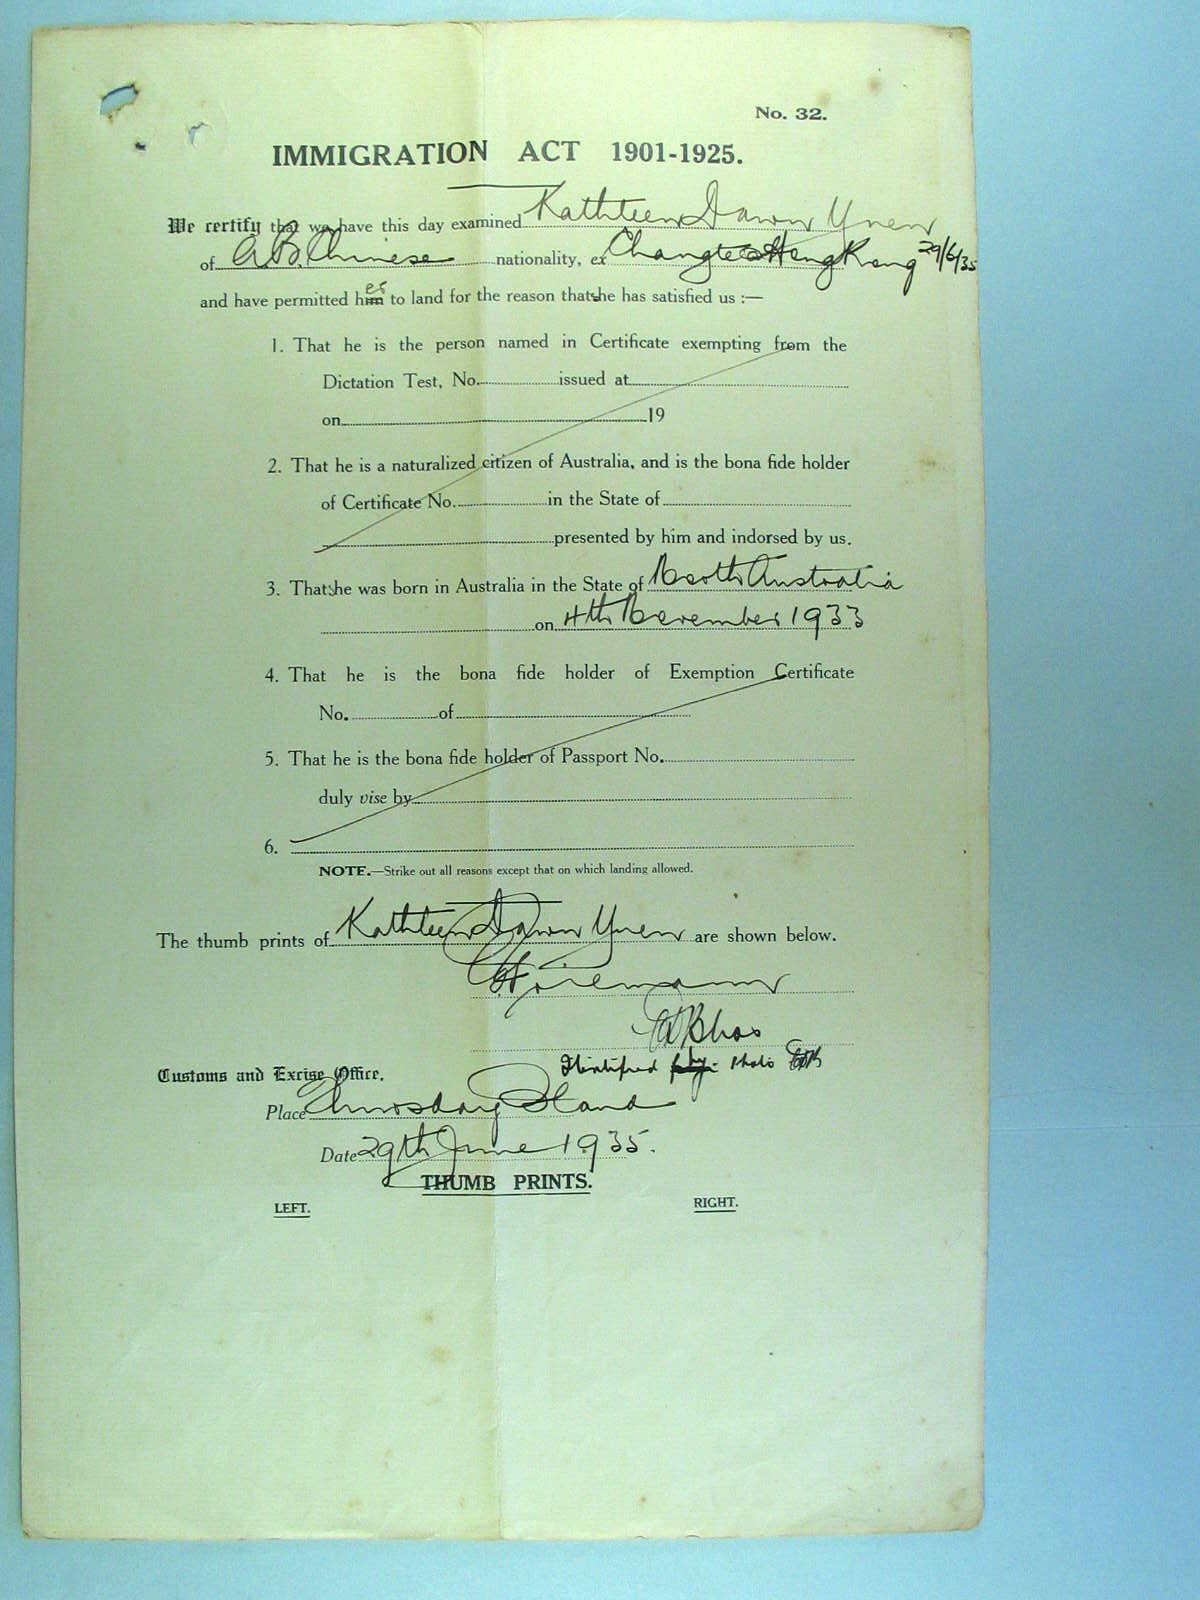 No. 32.
IMMIGRATION ACT 1901-1925.
We certify that we have this day examined Kathleen Dawn Yuen
of A.B. Chinese nationality, ex Changte Hong Kong 29/6/35
and have permitted her to land for the reason that she has satisfied us :—
1. That he is the person named in Certificate exempting from the
Dictation Test, No. issued at
on 19
2. That he is a naturalized citizen of Australia, and is the bona fide holder
of Certificate No. in the State of
presented by him and indorsed by us.
3. That she was born in Australia in the State of North Australia
on 4th November 1933
4. That he is the bona fide holder of Exemption Certificate
No. of
5. That he is the bona fide holder of Passport No.
duly vise by
6.
NOTE.—Strike out all reasons except that on which landing allowed.
The thumb prints of Kathleen Dawn Yuen are shown below.
Identified by Photo
Customs and Excise Office,
Place Thursday Island
Date 29th June 1935.
THUMB PRINTS.
LEFT. RIGHT.